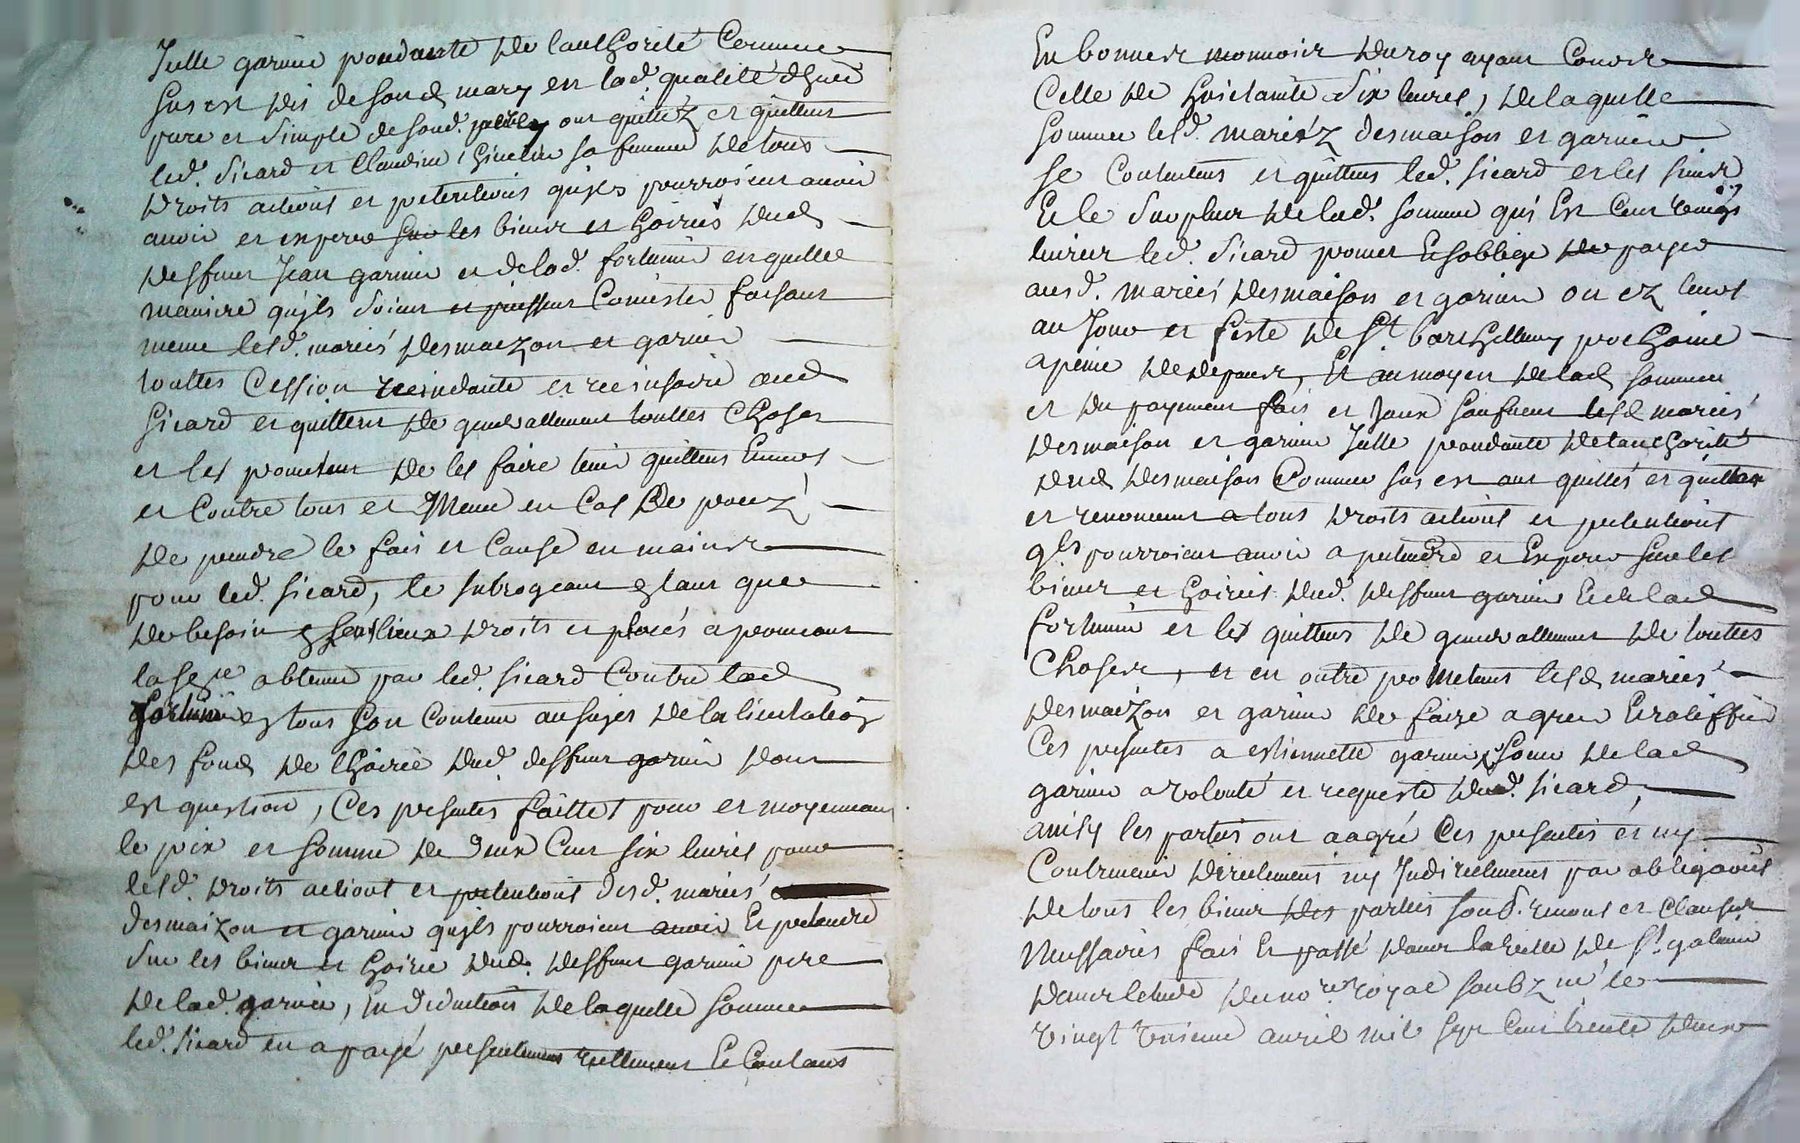 Jelle garnier procedante de lauthorité comme
sus est dit de sond. mary en lad. qualité
pure et simple de sond. ont quittéz et quittent
led. Sicard et Claudine sa femme de tous
droits actions et pretentions quiles pourroient auoir
auoir et esperer sur les biens et hoiries dud
deffunt Jean garnier et de lad. fortunie en quelle
maniere quils soient et puissent Concister faisant
meme lesd. mariés desmaizon et garnier
touttes Cession et necessaire aud
Sicard et quittent de generallement touttes Choses
et les promettent de les faire tenir quittens Enuers
et Contre tous et Meme en Cas De
de prendre le fait et Cause en mains
pour led. Sicard, le subrogeant estant que
de besoin lieux droits et places a
la obtenue par led. Sicard Contre lad
fortunie tous son Contenu au sujet de la licitation
des fonds de Lhoirie dud. deffunt garnier dont
est question, Ces presentes faittes pour et moyennant
le prix et somme de Deux Cent six liures pour
lesd. droits actions et pretentions desd. mariés
desmaizon et garnier quils pourroient auoir Et pretendre
sur les biens et hoirie dud. deffunt garnier pere
de lad. garnier, En deduction de laquelle somme
led. Sicard en a payé presentement reellement Et Contant
En bonnes monnoies du roy ayant Cours
Celle de huictante Six liures, de laquelle
somme lesd. mariéz desmaison et garnier
se Contentent et quittent led. Sicard et les siens
Et le Surplus de lad. somme qui Est Cent vingt
liures led. Sicard promet Et sobblige de payer
ausd. mariés desmaison et garnier ou ez leurs
au Jour et feste de St barthellemy prochaine
a peine de depens, Et au moyen de lad somme
et du payement fait et lesd mariés
desmaison et garnier Jelle procedante de lauthorité
dud desmaison Comme sus est ont quittés et quittent
et renoncent a tous droits actions et pretentions
qls pourroient auoir a pretendre et Esperer sur les
biens et hoiries dud. deffunt garnier Et de lad
fortunie et les quittent de generallement de touttes
Choses, et en outre promettent lesd mariés
desmaizon et garnier de faire agreer Et ratiffier
Ces presentes a estiennette garnier soeur de lad
garnier a volonté et requeste dud. Sicard,
ainsy les parties ont aagré Ces presentes et ny
Contreuenir directement ny Indirectement par obligations
de tous les biens des parties soud. renont et clauses
necessaires fait Et passé dans la ville de St galmier
dans letude du nore royal soubzné le
vingt auril mil sept Cent trente deux